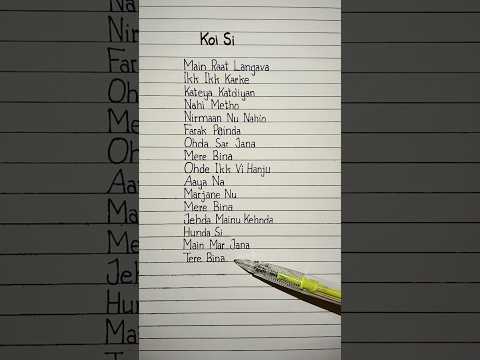 Koi Si
Main Raat Langava
Ikk Ikk Karke
Kateya Katdiyan
Nahi Metho
Nirmaan Nu Nahio
Farak Painda
Ohda Sar Jana
Mere Bina
Ohde Ikk Vi Hanju
Aaya Na
Marjane Nu
Mere Bina
Jehda Mainu Kehnda
Hunda Si...
Main Mar Jana
Tere Bina.